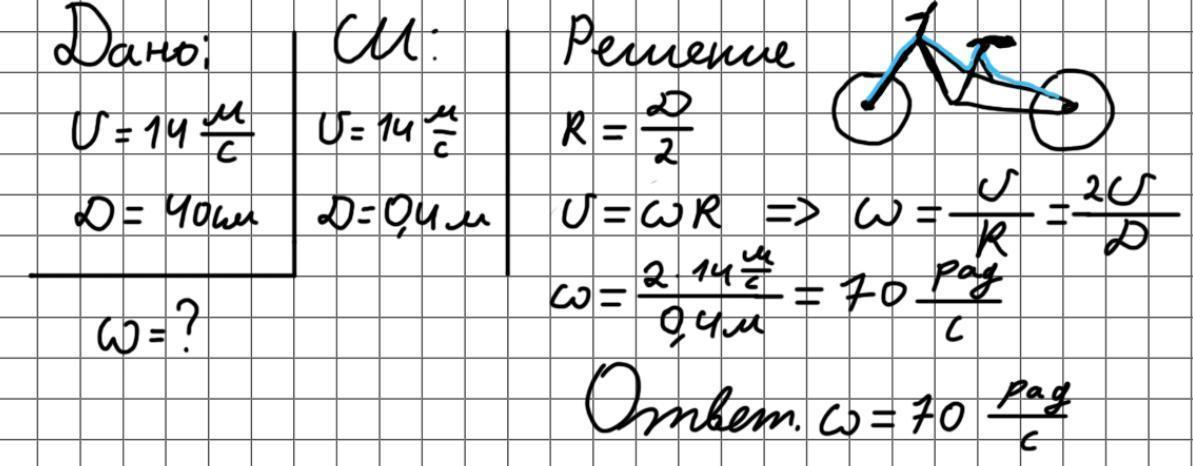 Дано:
υ = 14 м/с
D = 40см
ω = ?
СИ:
υ = 14 м/с
D = 0,4 м
Решение
R = D/2
υ = ωR => ω = υ/R = 2υ/D
ω = (2 · 14 м/с)/(0,4м) = 70 рад/с
Ответ. ω = 70 рад/с